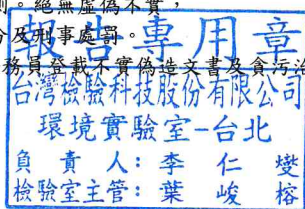 則。絕無虛偽不實，
分及刑事處罰。
報告專用章
務員登載不實偽造文書及貪污治
台灣檢驗科技股份有限公司
環境實驗室-台北
負責人：李仁燮
檢驗室主管：葉峻榕